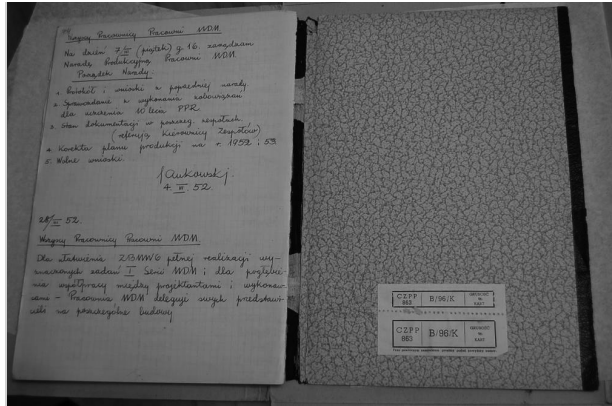 Wszyscy Pracownicy Pracowni MDM
Na dzień 7/III (piątek) g 16. zarządzam
Naradę Produkcyjną Pracowni MDM.
Porządek Narady.
1. Protokół i wnioski z poprzedniej narady
2. Sprawozdanie z wykonania zobowiązań
dla uczczenia 10 lecia PPR
3. Stan dokumentacji w poszczeg. zespołach.
(referują Kierownicy Zespołów)
4. Korekta planu produkcji na r. 1952 i 53
5. Wolne wnioski.
Jankowski
4 III 52.
28/III 52.
Wszyscy Pracownicy Pracowni MDM.
Dla ułatwienia ZBMW6 pełnej realizacji wy-
znaczonych zadań I Serii MDM i dla pogłębie-
nia współpracy między projektantami i wykonaw-
cami – Pracownia MDM deleguje swych przedstawi-
cieli na poszczególne budowy
CZPP
863
B/96/K
CZPP
863
B/96/K